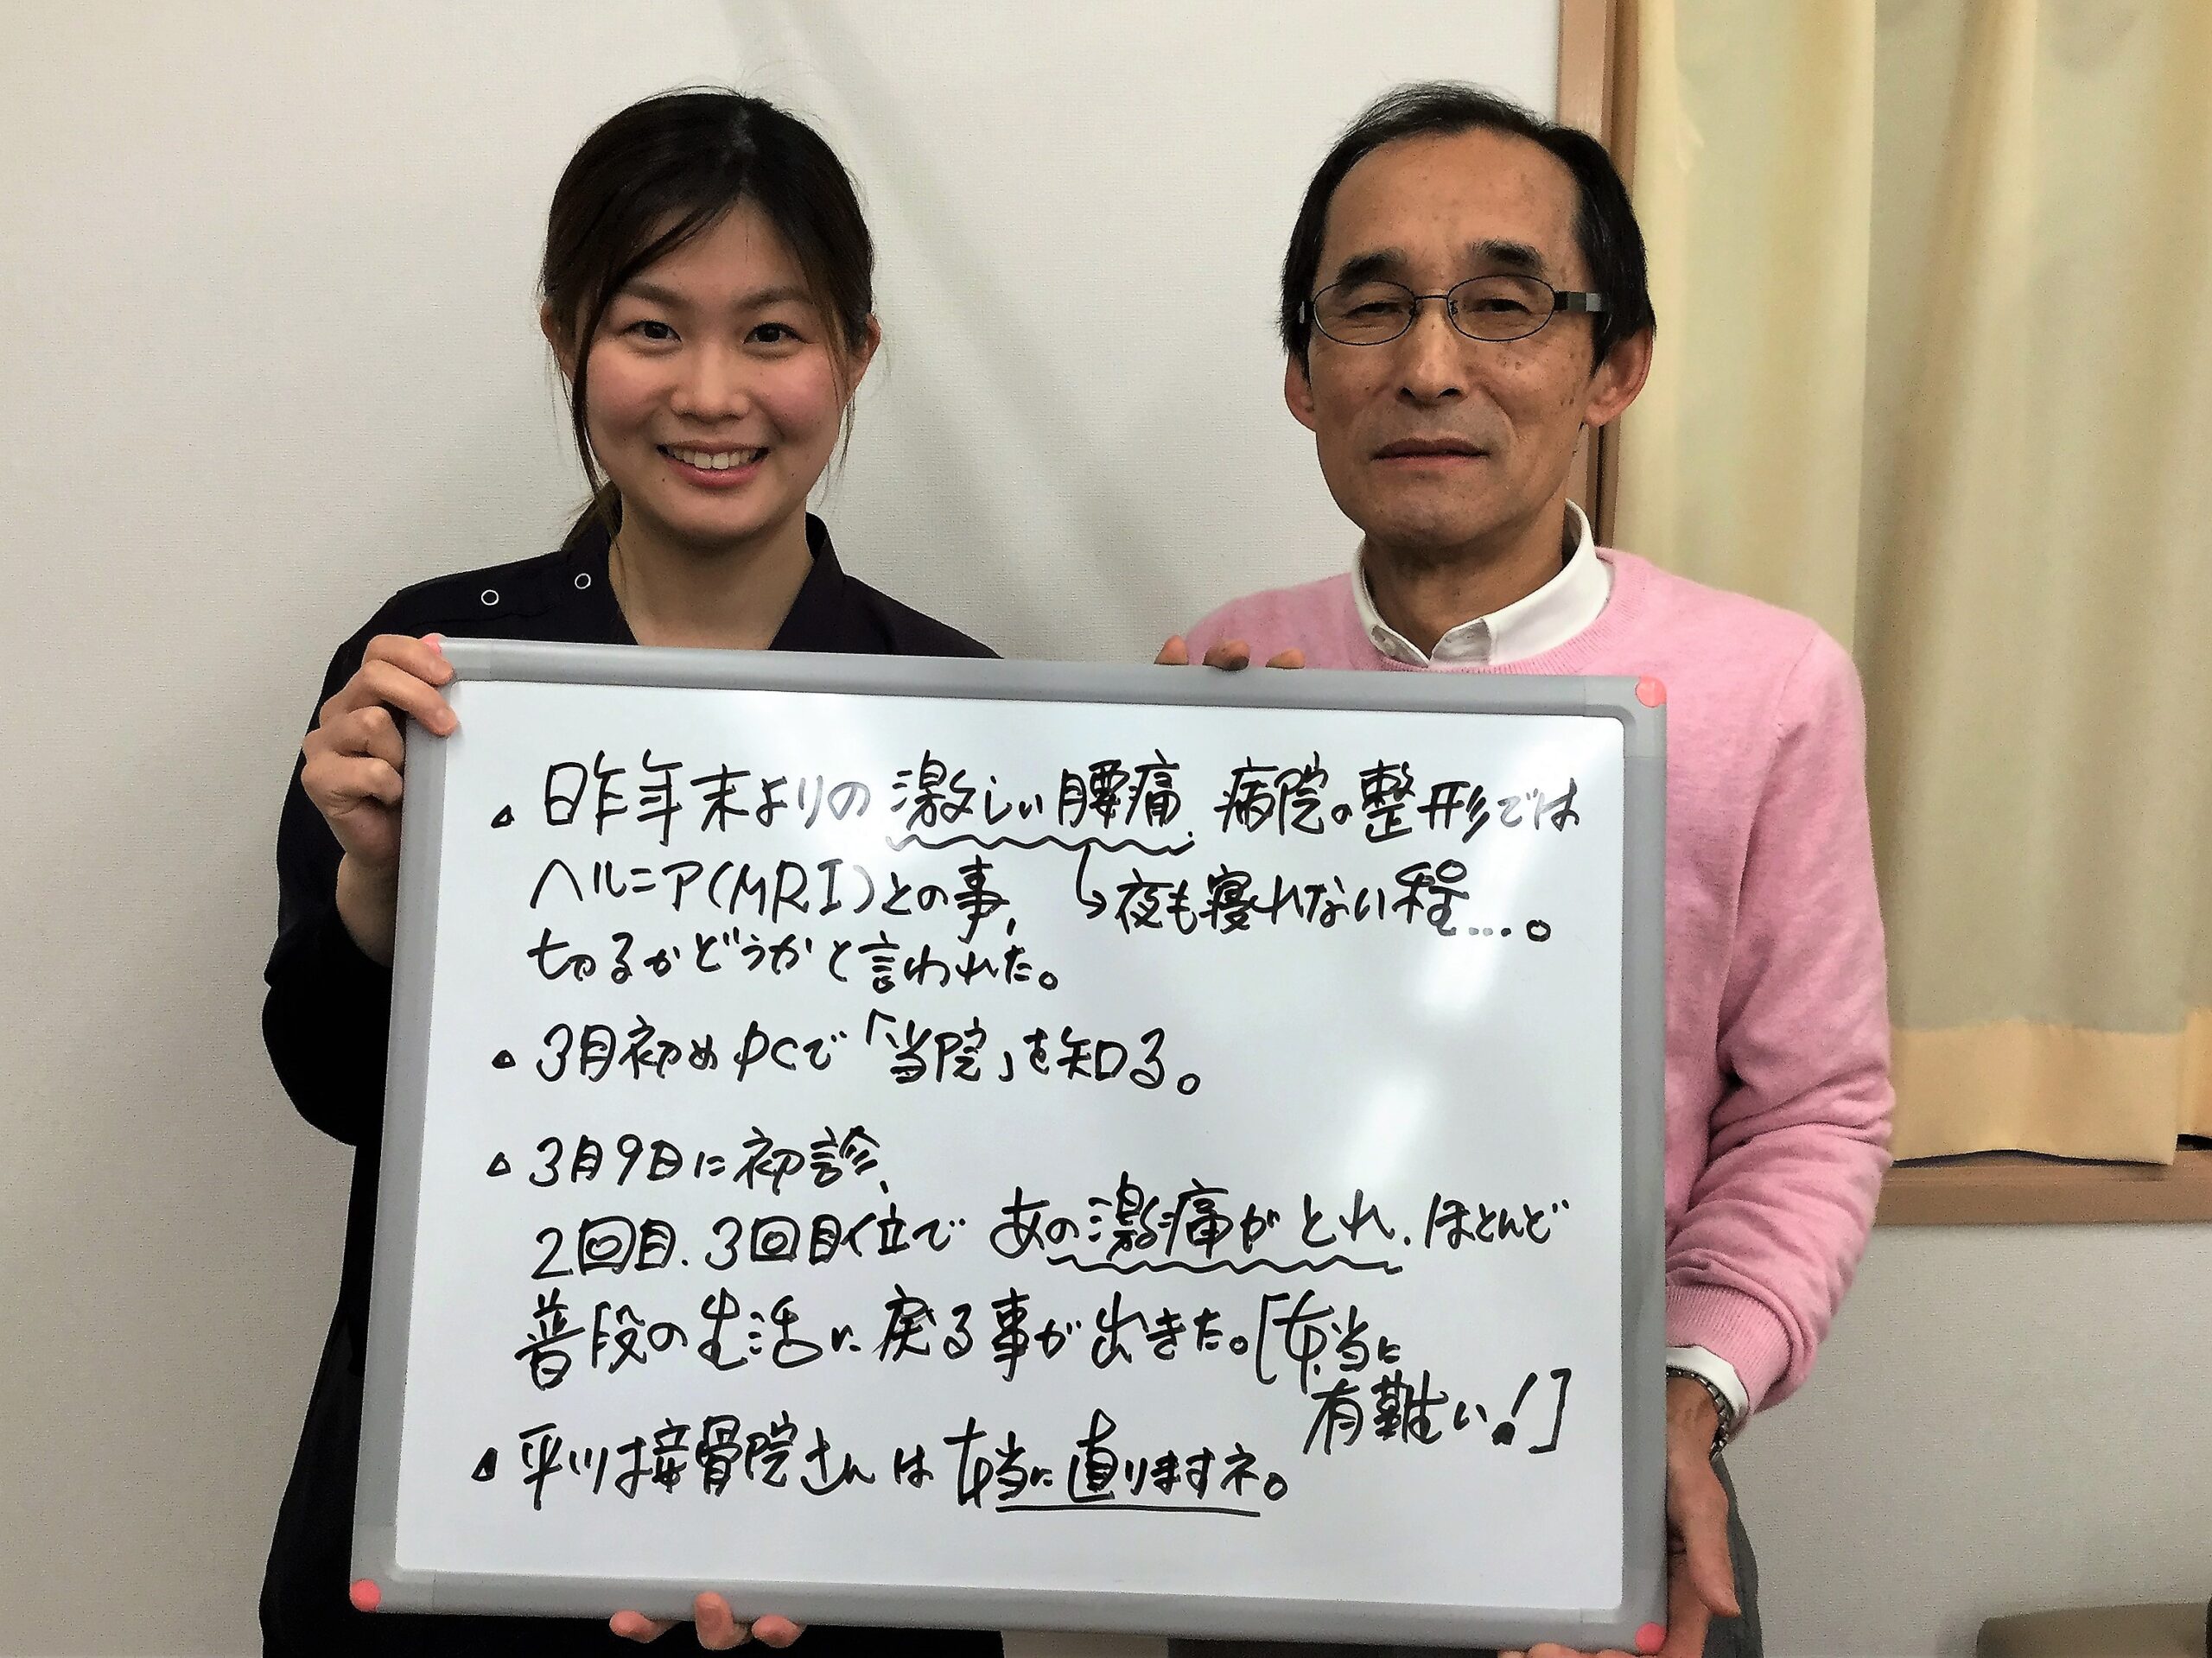 ▵ 昨年末よりの激しい腰痛、病院の整形では
ヘルニア(MRI)との事、 ↳夜も寝れない程…。
切るかどうかと言われた。
▵ 3月初めPCで「当院」を知る。
▵ 3月9日に初診、
2回目、3回目位で あの激痛がとれ、ほとんど
普段の生活に戻る事が出きた。[本当に
有難い!]
▵ 平川接骨院さんは本当に直りますネ。